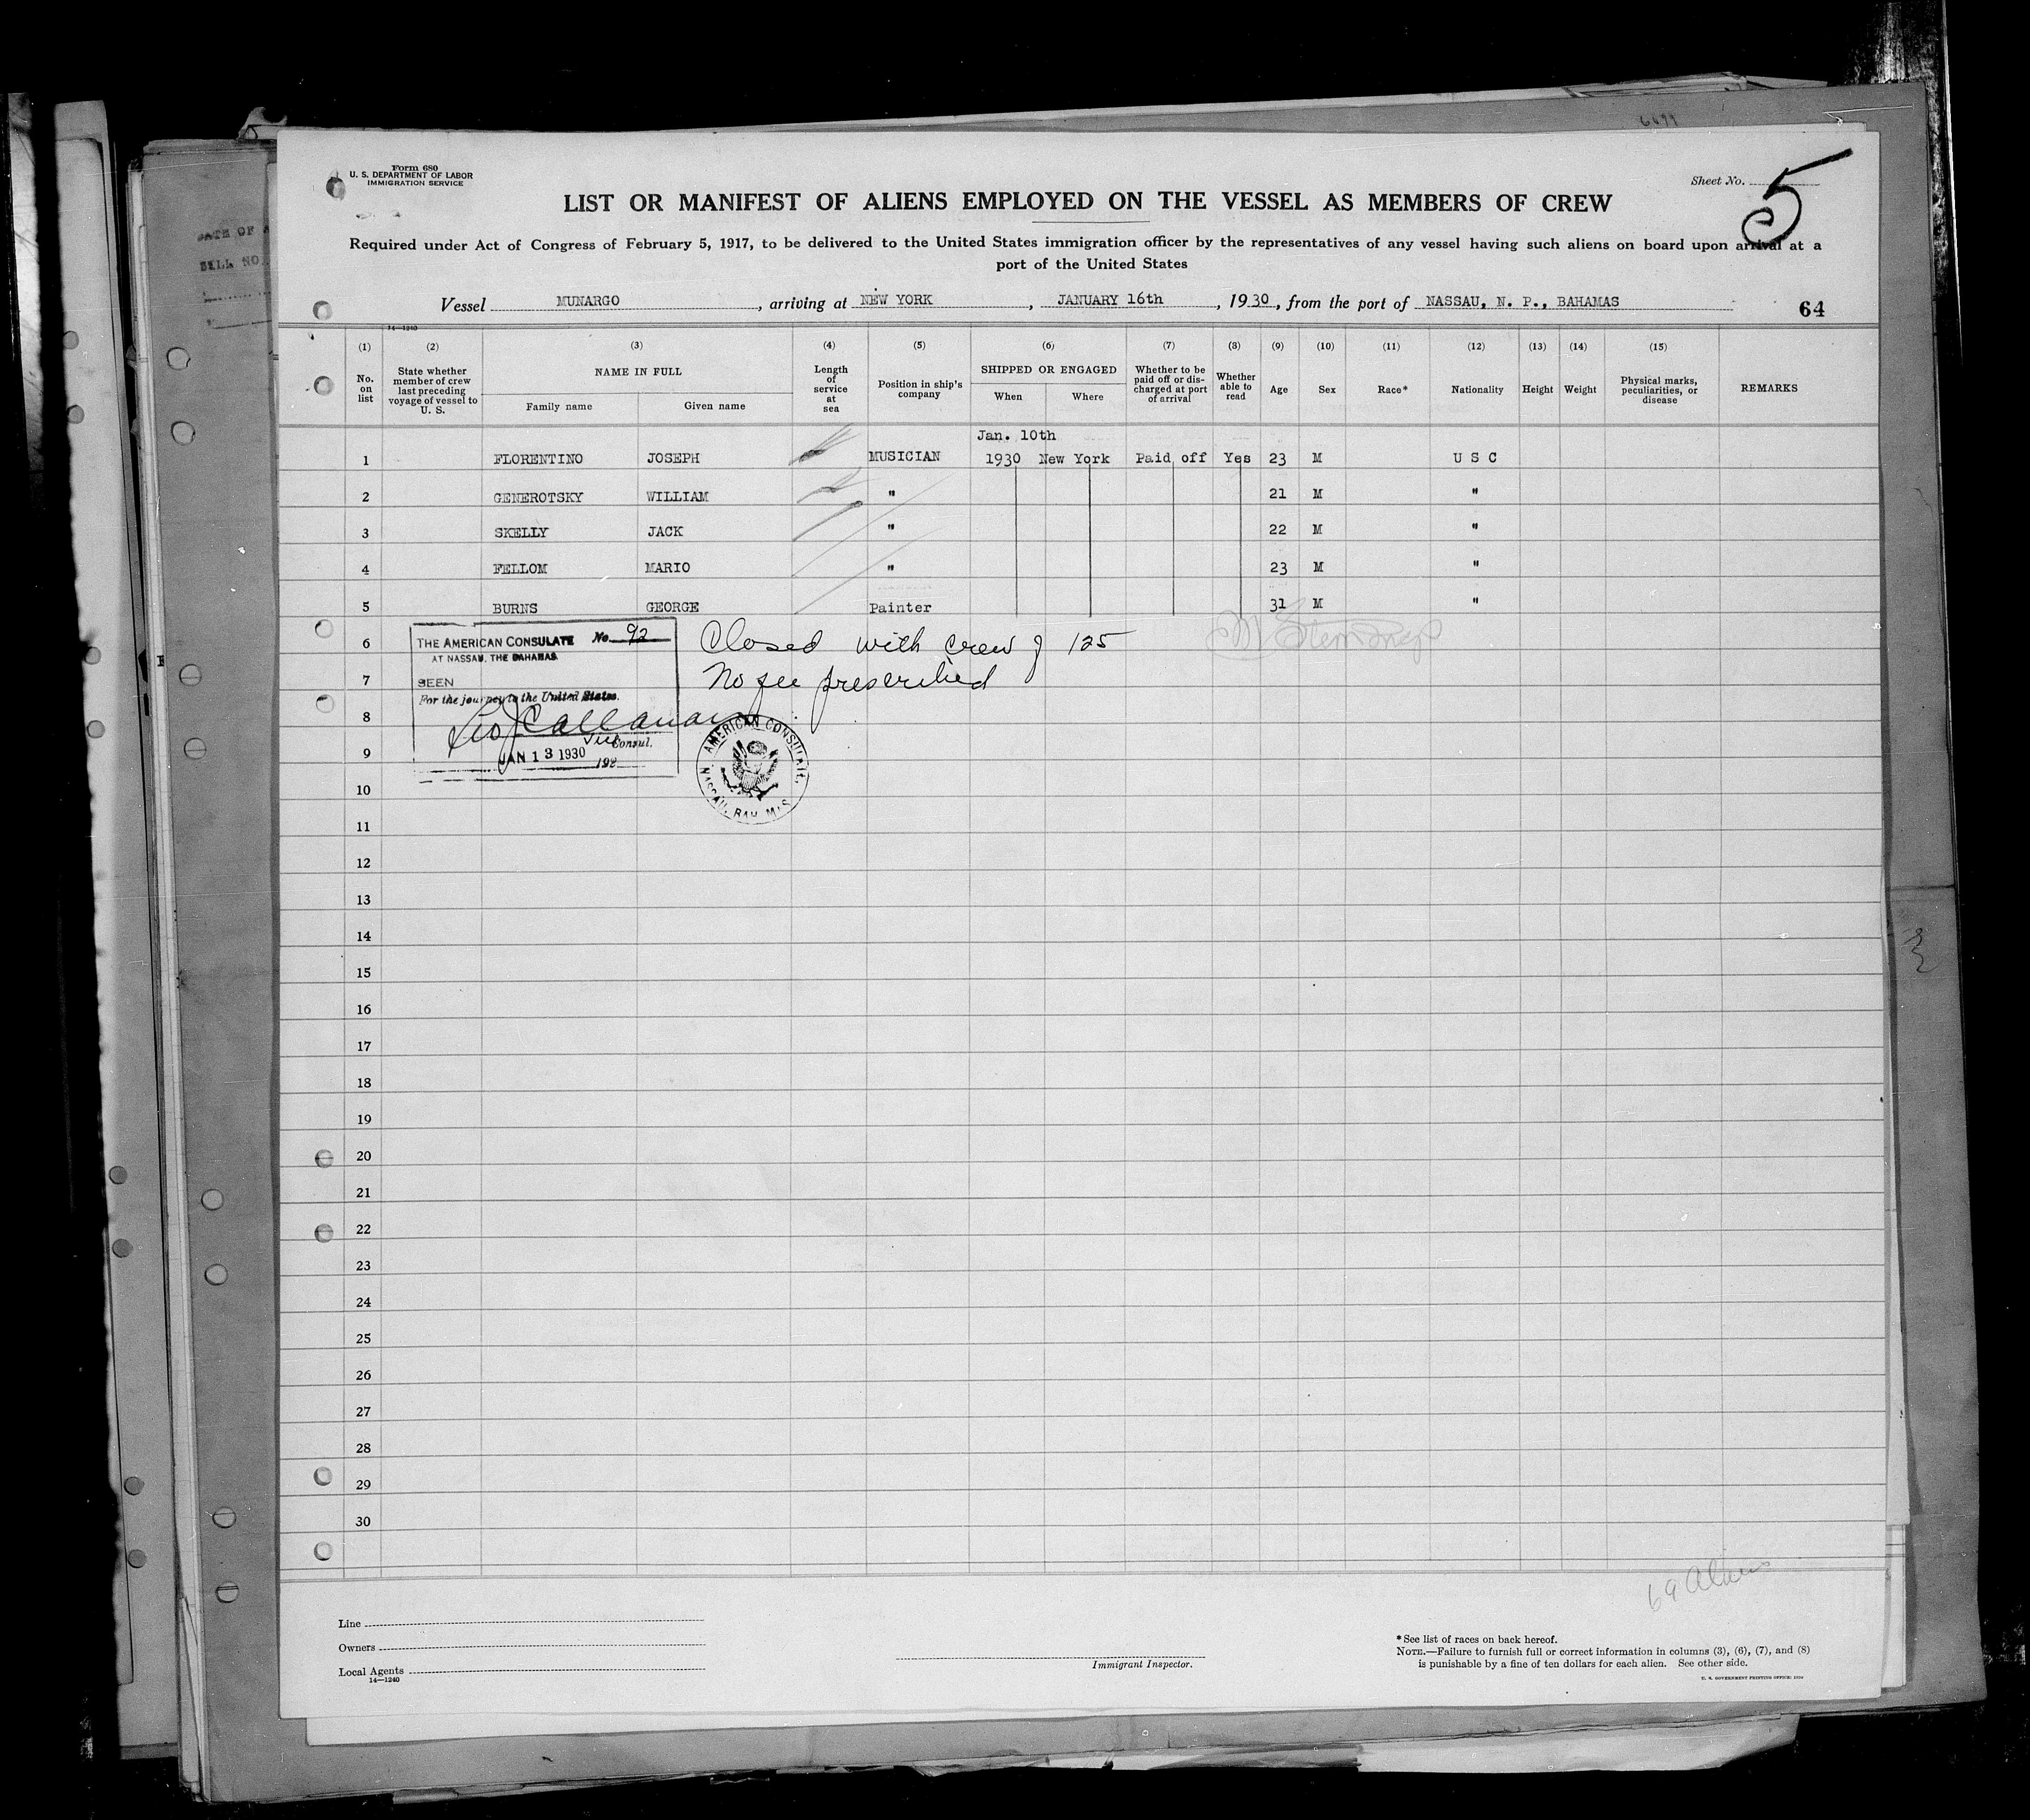 6499
Form 680
U. S. DEPARTMENT OF LABOR
IMMIGRATION SERVICE
Sheet No. 5
LIST OR MANIFEST OF ALIENS EMPLOYED ON THE VESSEL AS MEMBERS OF CREW
Required under Act of Congress of February 5, 1917, to be delivered to the United States immigration officer by the representatives of any vessel having such aliens on board upon arrival at a
port of the United States
Vessel MUNARGO, arriving at NEW YORK, JANUARY 16th, 1930, from the port of NASSAU, N. P., BAHAMAS
64
14—1240
(1) (2) (3) (4) (5) (6) (7) (8) (9) (10) (11) (12) (13) (14) (15)
No. on list
State whether member of crew last preceding voyage of vessel to U. S.
NAME IN FULL
Family name Given name
Length of service at sea
Position in ship's company
SHIPPED OR ENGAGED
When Where
Whether to be paid off or discharged at port of arrival
Whether able to read
Age Sex Race* Nationality Height Weight
Physical marks, peculiarities, or disease
REMARKS
Jan. 10th
1 FLORENTINO JOSEPH MUSICIAN 1930 New York Paid off Yes 23 M U S C
2 GENEROTSKY WILLIAM " 21 M "
3 SKELLY JACK " 22 M "
4 FELLOM MARIO " 23 M "
5 BURNS GEORGE Painter 31 M "
6
7
8
9
10
11
12
13
14
15
16
17
18
19
20
21
22
23
24
25
26
27
28
29
30
THE AMERICAN CONSULATE No. 92
AT NASSAU, THE BAHAMAS
SEEN
For the journey to the United States.
Leo J Callanan
Vice Consul.
JAN 13 1930 192
Closed with crew of 125
No fee prescribed
AMERICAN CONSULATE, NASSAU, BAHAMAS
69 Aliens
Line
Owners
Local Agents
14—1240
Immigrant Inspector.
* See list of races on back hereof.
NOTE.—Failure to furnish full or correct information in columns (3), (6), (7), and (8)
is punishable by a fine of ten dollars for each alien. See other side.